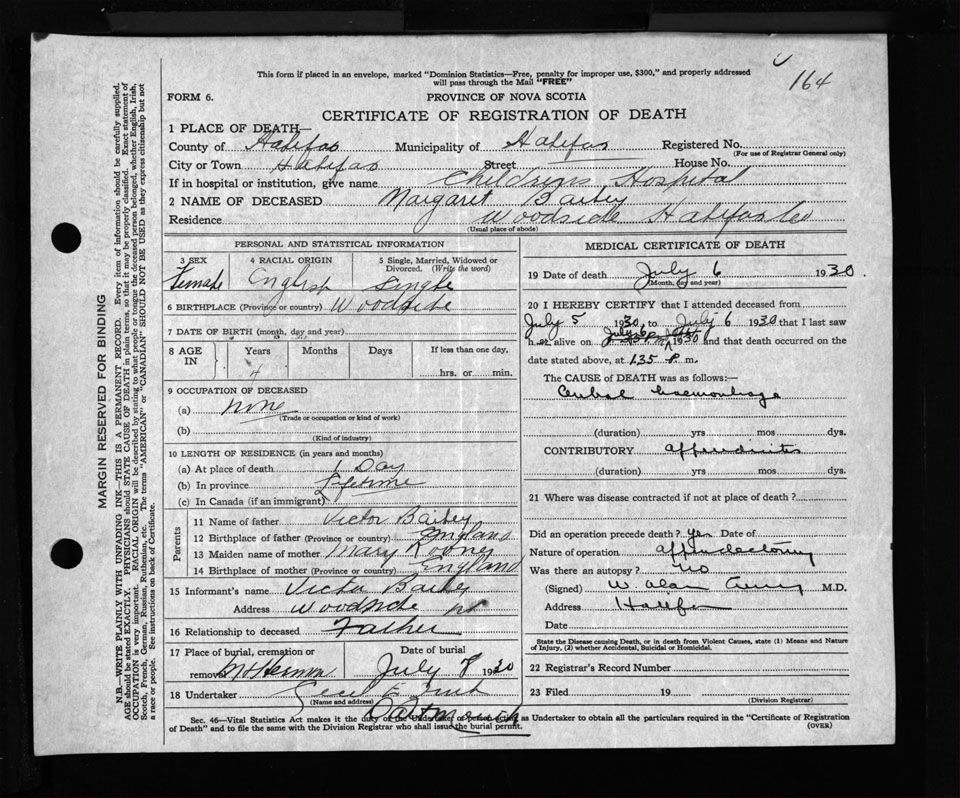 164
This form if placed in an envelope, marked "Dominion Statistics—Free, penalty for improper use, $300," and properly addressed
will pass through the Mail "FREE"
FORM 6.
PROVINCE OF NOVA SCOTIA
CERTIFICATE OF REGISTRATION OF DEATH
1 PLACE OF DEATH—
County of Halifax Municipality of Halifax Registered No.
(For use of Registrar General only)
City or Town Halifax Street House No.
If in hospital or institution, give name Childrens Hospital
2 NAME OF DECEASED Margaret Bailey
Residence Woodside Halifax Co
(Usual place of abode)
PERSONAL AND STATISTICAL INFORMATION
3 SEX 4 RACIAL ORIGIN 5 Single, Married, Widowed or
Divorced. (Write the word)
Female English Single
6 BIRTHPLACE (Province or country) Woodside
7 DATE OF BIRTH (month, day and year)
8 AGE IN Years Months Days If less than one day,
4 hrs. or min.
9 OCCUPATION OF DECEASED
(a) none
(Trade or occupation or kind of work)
(b)
(Kind of industry)
10 LENGTH OF RESIDENCE (in years and months)
(a) At place of death 1 Day
(b) In province Lifetime
(c) In Canada (if an immigrant)
Parents
11 Name of father Victor Bailey
12 Birthplace of father (Province or country) England
13 Maiden name of mother Mary Rooney
14 Birthplace of mother (Province or country) England
15 Informant's name Victor Bailey
Address Woodside NS
16 Relationship to deceased Father
17 Place of burial, cremation or Date of burial
removal Mt Hermon July 8 1930
18 Undertaker Cecil E
(Name and address)
Dartmouth
MEDICAL CERTIFICATE OF DEATH
19 Date of death July 6 1930.
(Month, day and year)
20 I HEREBY CERTIFY that I attended deceased from
July 5 1930 to July 6 1930 that I last saw
h er alive on July 6 1930 and that death occurred on the
date stated above, at 1.35 P. m.
The CAUSE of DEATH was as follows:—
Cerebral haemorrhage
(duration) yrs mos dys.
CONTRIBUTORY appendicitis
(duration) yrs mos dys.
21 Where was disease contracted if not at place of death?
Did an operation precede death? Yes Date of
Nature of operation appendectomy
Was there an autopsy? no
(Signed) W Alan Curry M.D.
Address Halifax
Date
State the Disease causing Death, or in death from Violent Causes, state (1) Means and Nature
of Injury, (2) whether Accidental, Suicidal or Homicidal.
22 Registrar's Record Number
23 Filed 19
(Division Registrar)
Sec. 46—Vital Statistics Act makes it the duty of the Undertaker or person acting as Undertaker to obtain all the particulars required in the "Certificate of Registration
of Death" and to file the same with the Division Registrar who shall issue the burial permit.
(OVER)
MARGIN RESERVED FOR BINDING
N.B.—WRITE PLAINLY WITH UNFADING INK—THIS IS A PERMANENT RECORD. Every item of information should be carefully supplied.
AGE should be stated EXACTLY. PHYSICIANS should STATE CAUSE OF DEATH in plain terms, so that it may be properly classified. Exact statement of
OCCUPATION is very important. RACIAL ORIGIN will be described by stating to what people or tongue the deceased person belonged, whether English, Irish,
Scotch, French, German, Russian, Ruthenian, etc. The terms "AMERICAN" or "CANADIAN" SHOULD NOT BE USED as they express citizenship but not
a race or people. See instructions on back of Certificate.